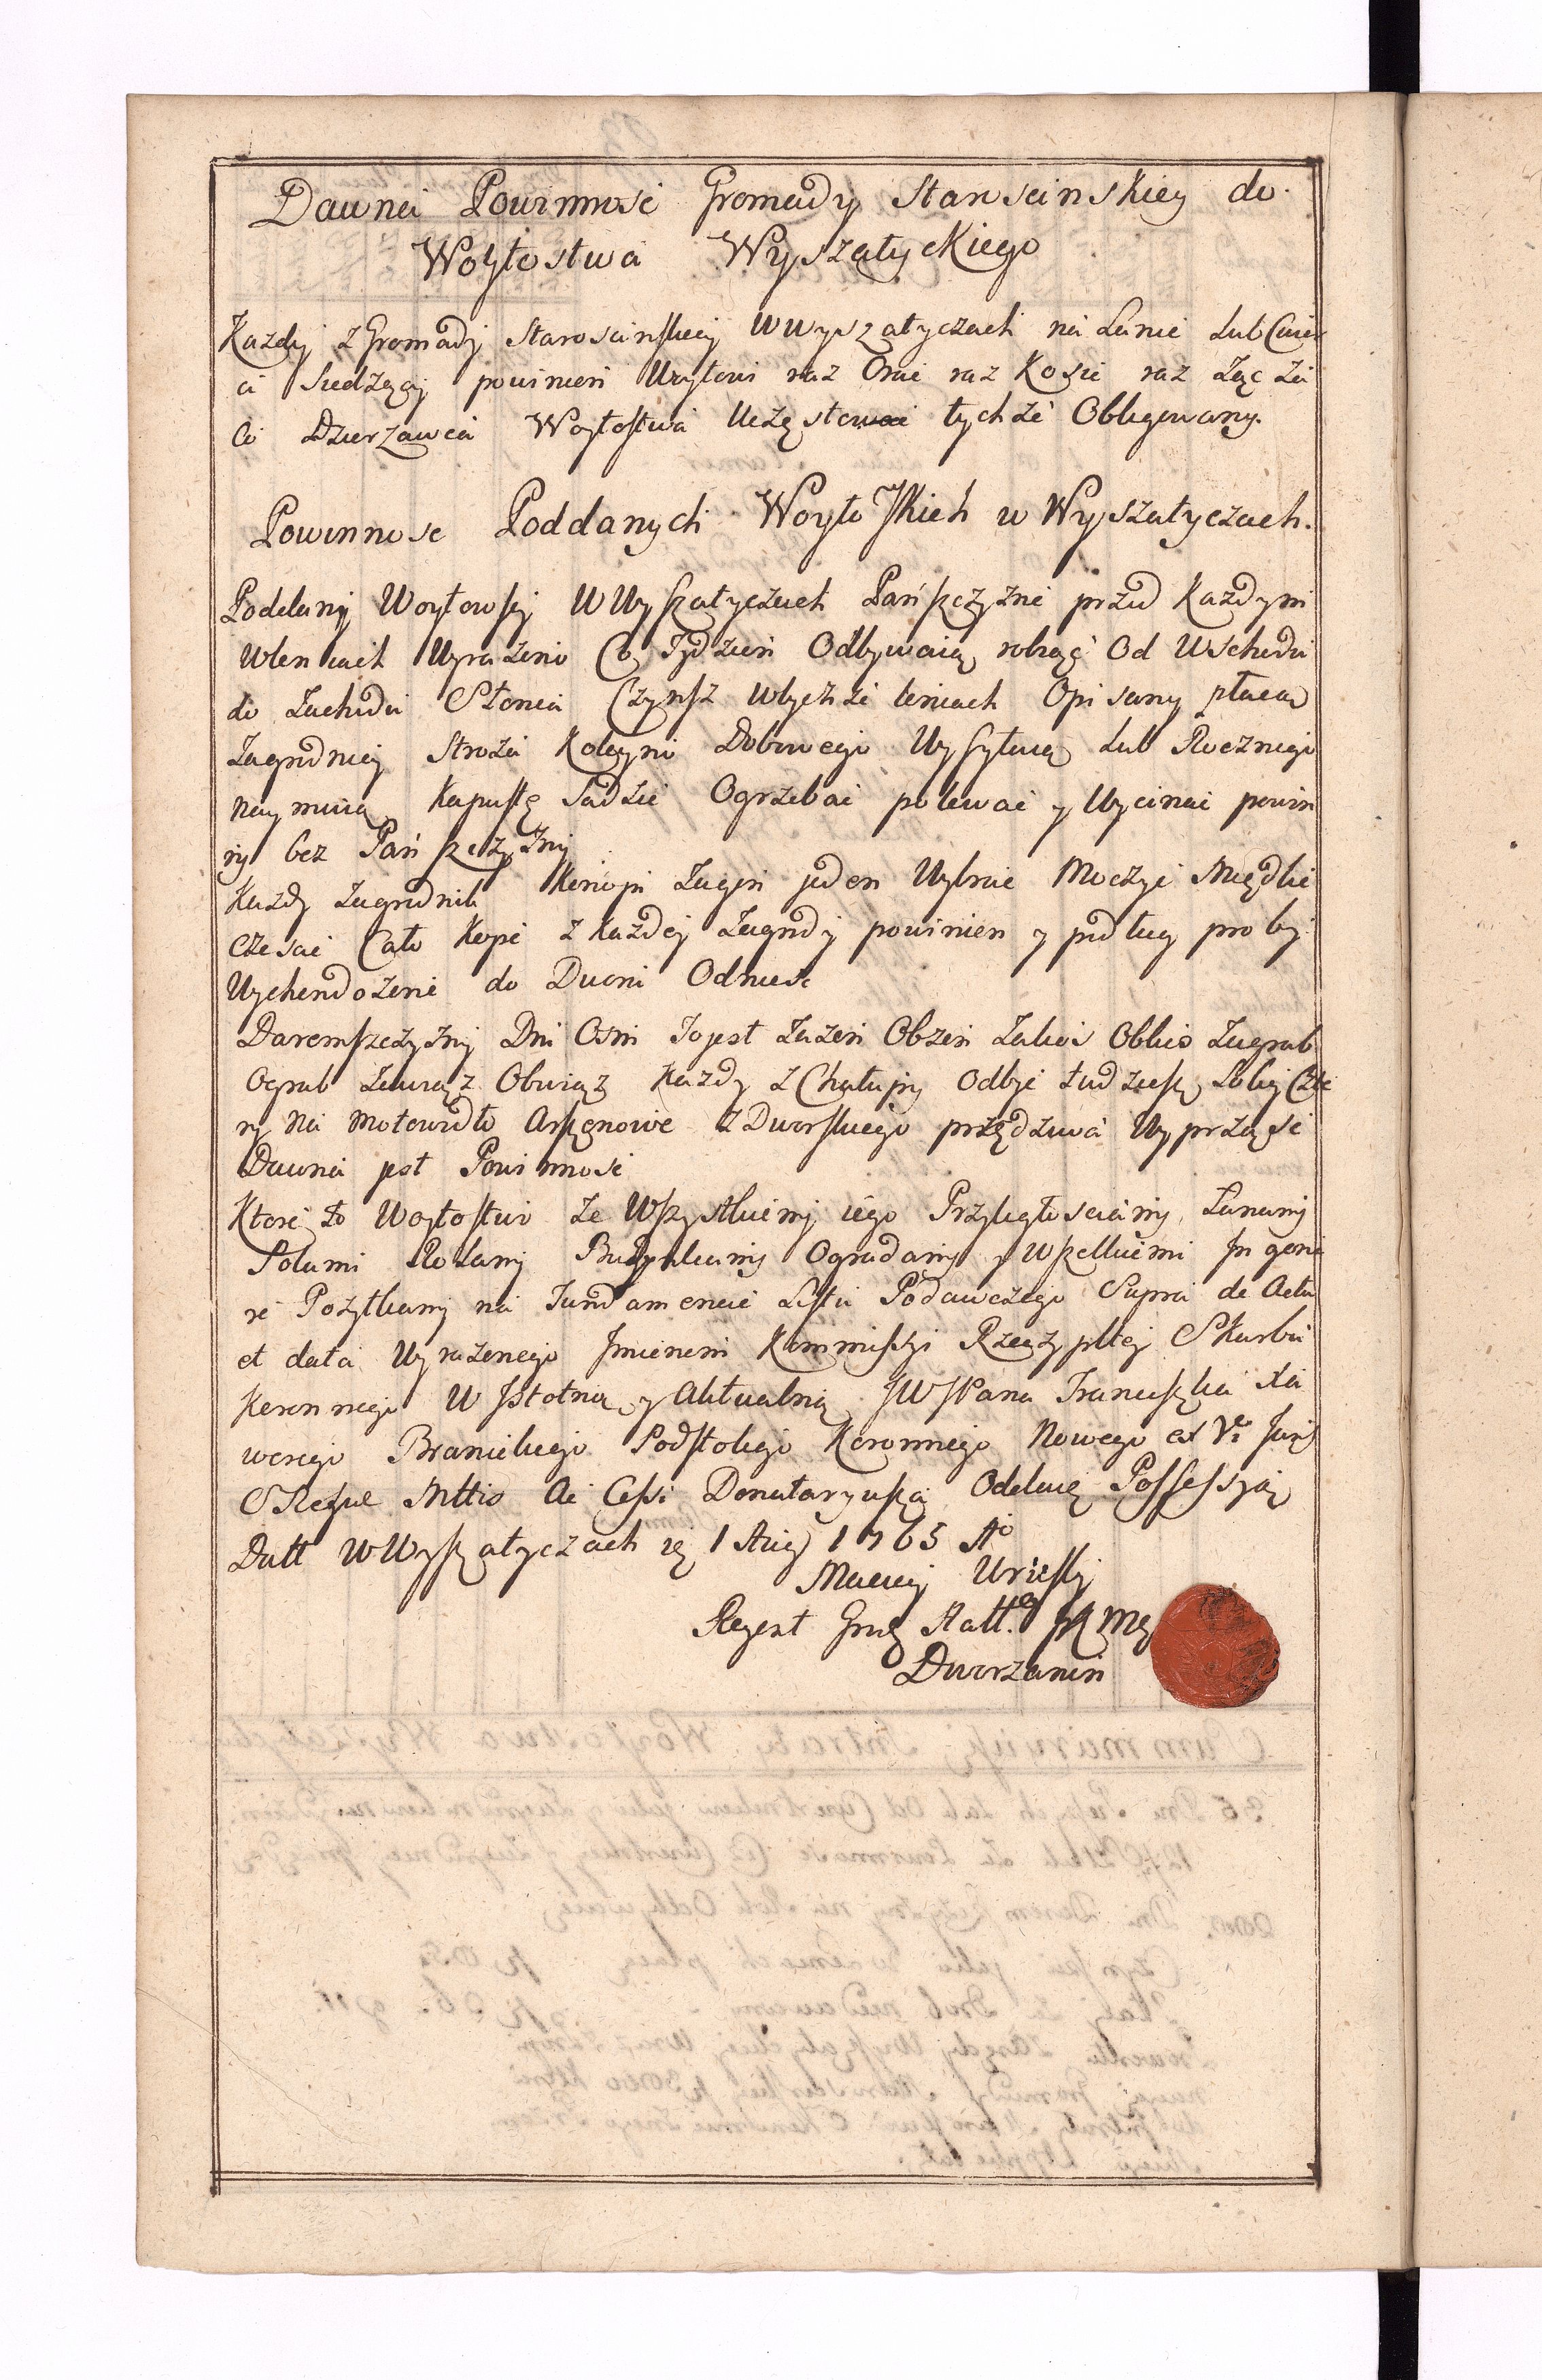 Dawna Powinnosc Gromady Staroscinskiey do
Woytostwa Wyszatyckiego
Kazdy z Gromady Staroscinskiey w Wyszatyczach na Łanie lub Cwier
ci Siedzący powinien Woytowi raz Orać raz Kosić raz Ząc za
Co Dzierzawca Woytostwa Uczęstować tychże Obligowany.
Powinnosc Poddanych Woytowskich w Wyszatyczach.
Poddany Woytowscy w Wyszatyczach Pańszczyzne przed Kazdym
w Leniach Wyrazono Co Tydzień Odbywaią robiąc Od Wschodu
do Zachodu Słonca Czynsz w tychże leniach Opisany płacą
Zagrodnicy Stroza Koleyno Dobowego Wysyłaią lub Rocznego
naymuią Kapustę Sadzić Ogrzebać polewać y Wycinać powin
ny bez Pańszczyzny
Kazdy Zagrodnik Konopi Zagon jeden Wybrać Moczyć Międlić
czesać Cało Kopę z Kazdey Zagrody powinien y podług proby
Wychendozone do Dworu Odniesc
Daremszczyzny Dni Osm To jest Zazen Obzen Zakos Obkos Zagrab
Ograb Zawiąz Obwiąz Kazdy z Chałupy Odbyć tudziesz Łokcy Czte
ry na motowidło Arszęnowe z Dworskiego przędziwa Wyprząsc
Dawna jest Powinnosc
Ktore to Woytostwo ze Wszystkiemi iego Przyległosciami, Łanami
Polami Rolami Budynkami Ogrodami y Wszelkiemi In gene
re Pozytkami na Fundamencie Listu Podawczego Supra de Actu
et data Wyrazonego Imieniem Kommissyi Rzeczypltey Skarbu
Koronnego W Jstotną y Aktualną JWJPana Franciszka Xa
werego Branickiego Podstolego Koronnego Nowego ex Vi Juris
SRegue Mttis Ac Cessi Donataryusza Oddaię Possessyą
Datt w Wyszatyczach 1 Aug 1765 Ao
Maciey
Regent JKMci
Dworzanin